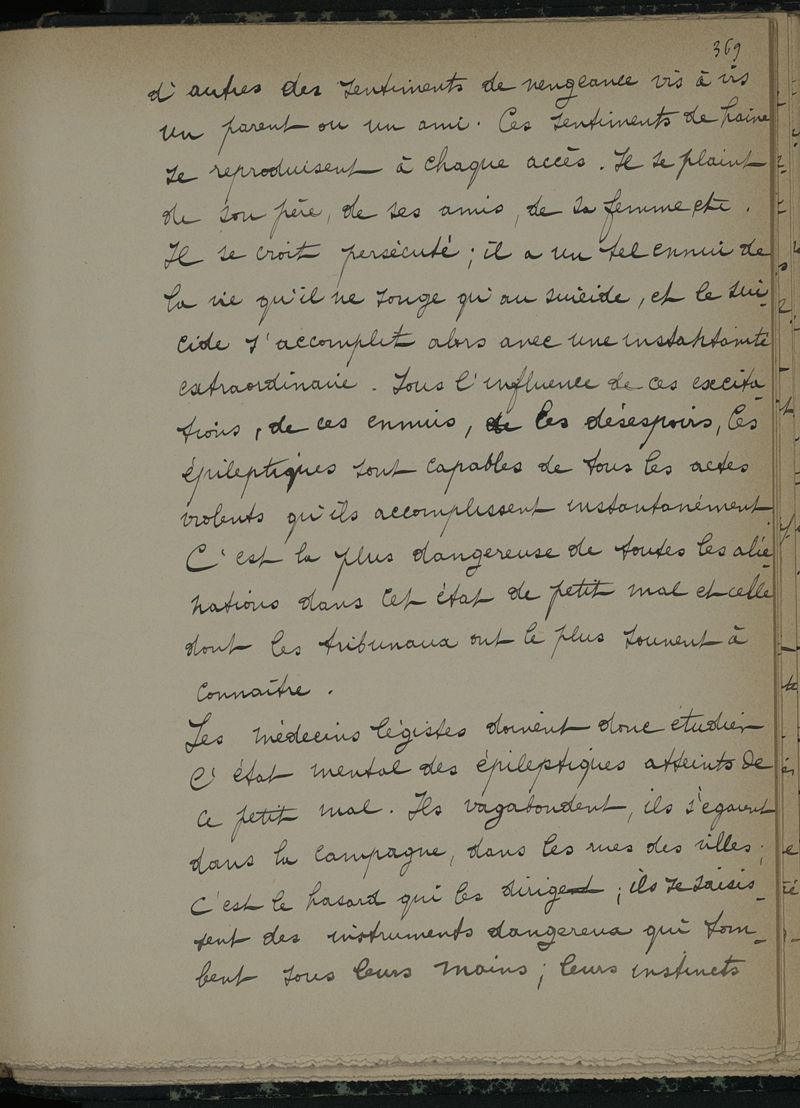 369
d'autres des sentiments de vengeance vis à vis
un parent ou un ami. Ces sentiments de haine
se reproduisent à chaque accès. Il se plaint
de son père, de ses amis, de sa femme etc.
Il se croit persécuté; il a un tel ennui de
la vie qu'il ne songe qu'au suicide, et le sui-
cide s'accomplit alors avec une instantanité
extraordinaire. Sous l'influence de ces excita-
tions, de ces ennuis, de ces désespoirs, les
épileptiques sont capables de tous les actes
violents qu'ils accomplissent instantanément.
C'est la plus dangereuse de toutes les alié-
nations dans cet état de petit mal et celle
dont les tribunaux ont le plus souvent à
connaître.
Les médecins légistes doivent donc étudier
l'état mental des épileptiques atteints de
ce petit mal. Ils vagabondent, ils s'égarent
dans la campagne, dans les rues des villes;
c'est le hasard qui les dirige; ils se saisis-
sent des instruments dangereux qui tom-
bent sous leurs mains; leurs instincts